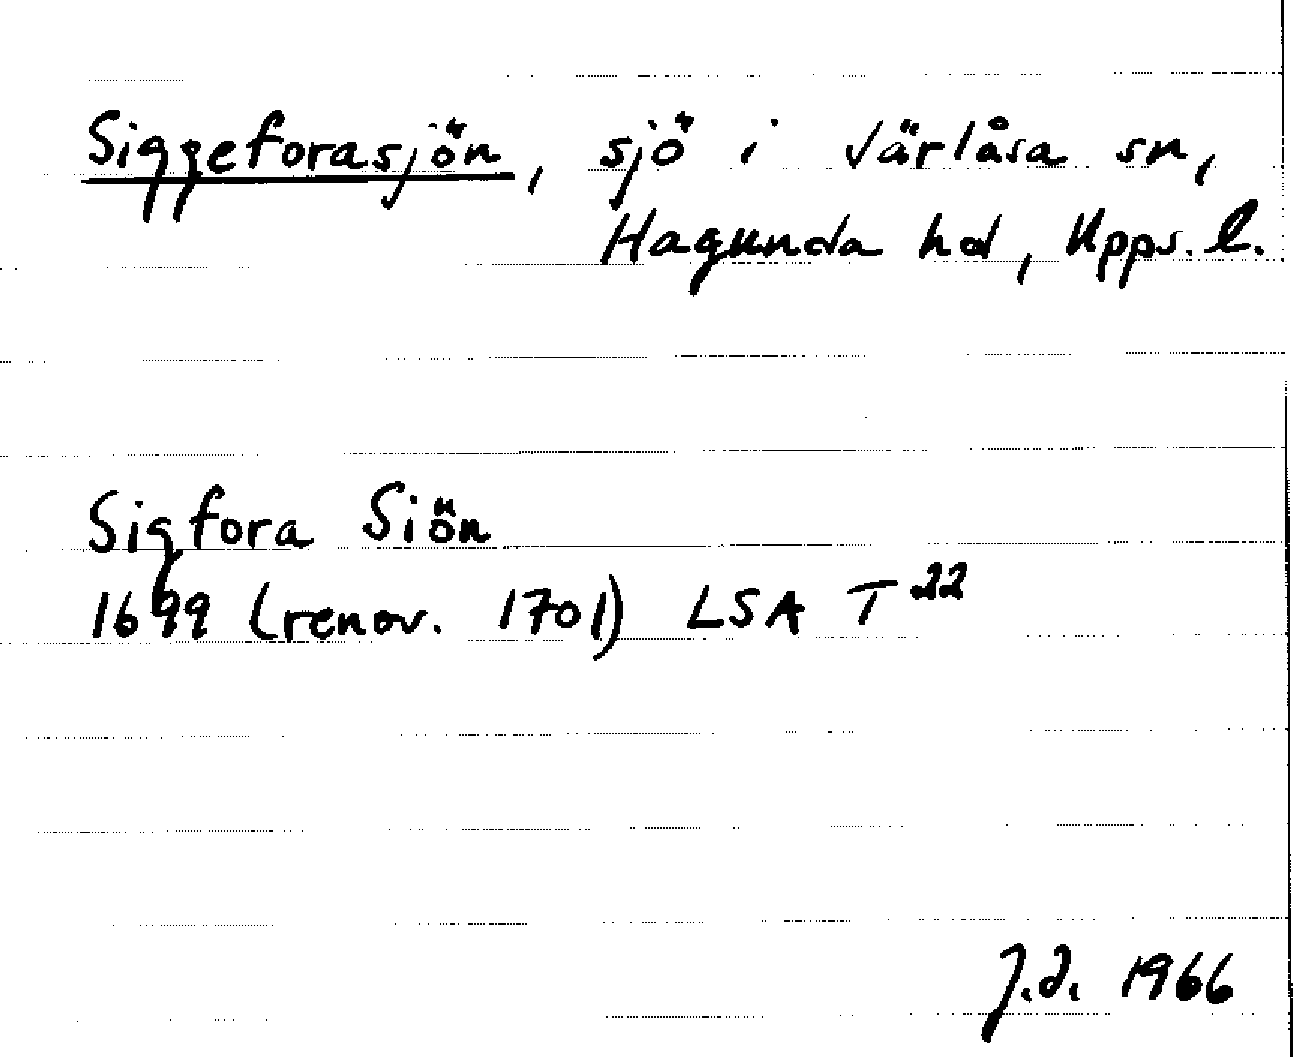 Siggeforasjön, sjö i Järlåsa sn,
Hagunda hd, Upps. l.
Sigfora Siön
1699 (renov. 1701) LSA T 22
J.d. 1966